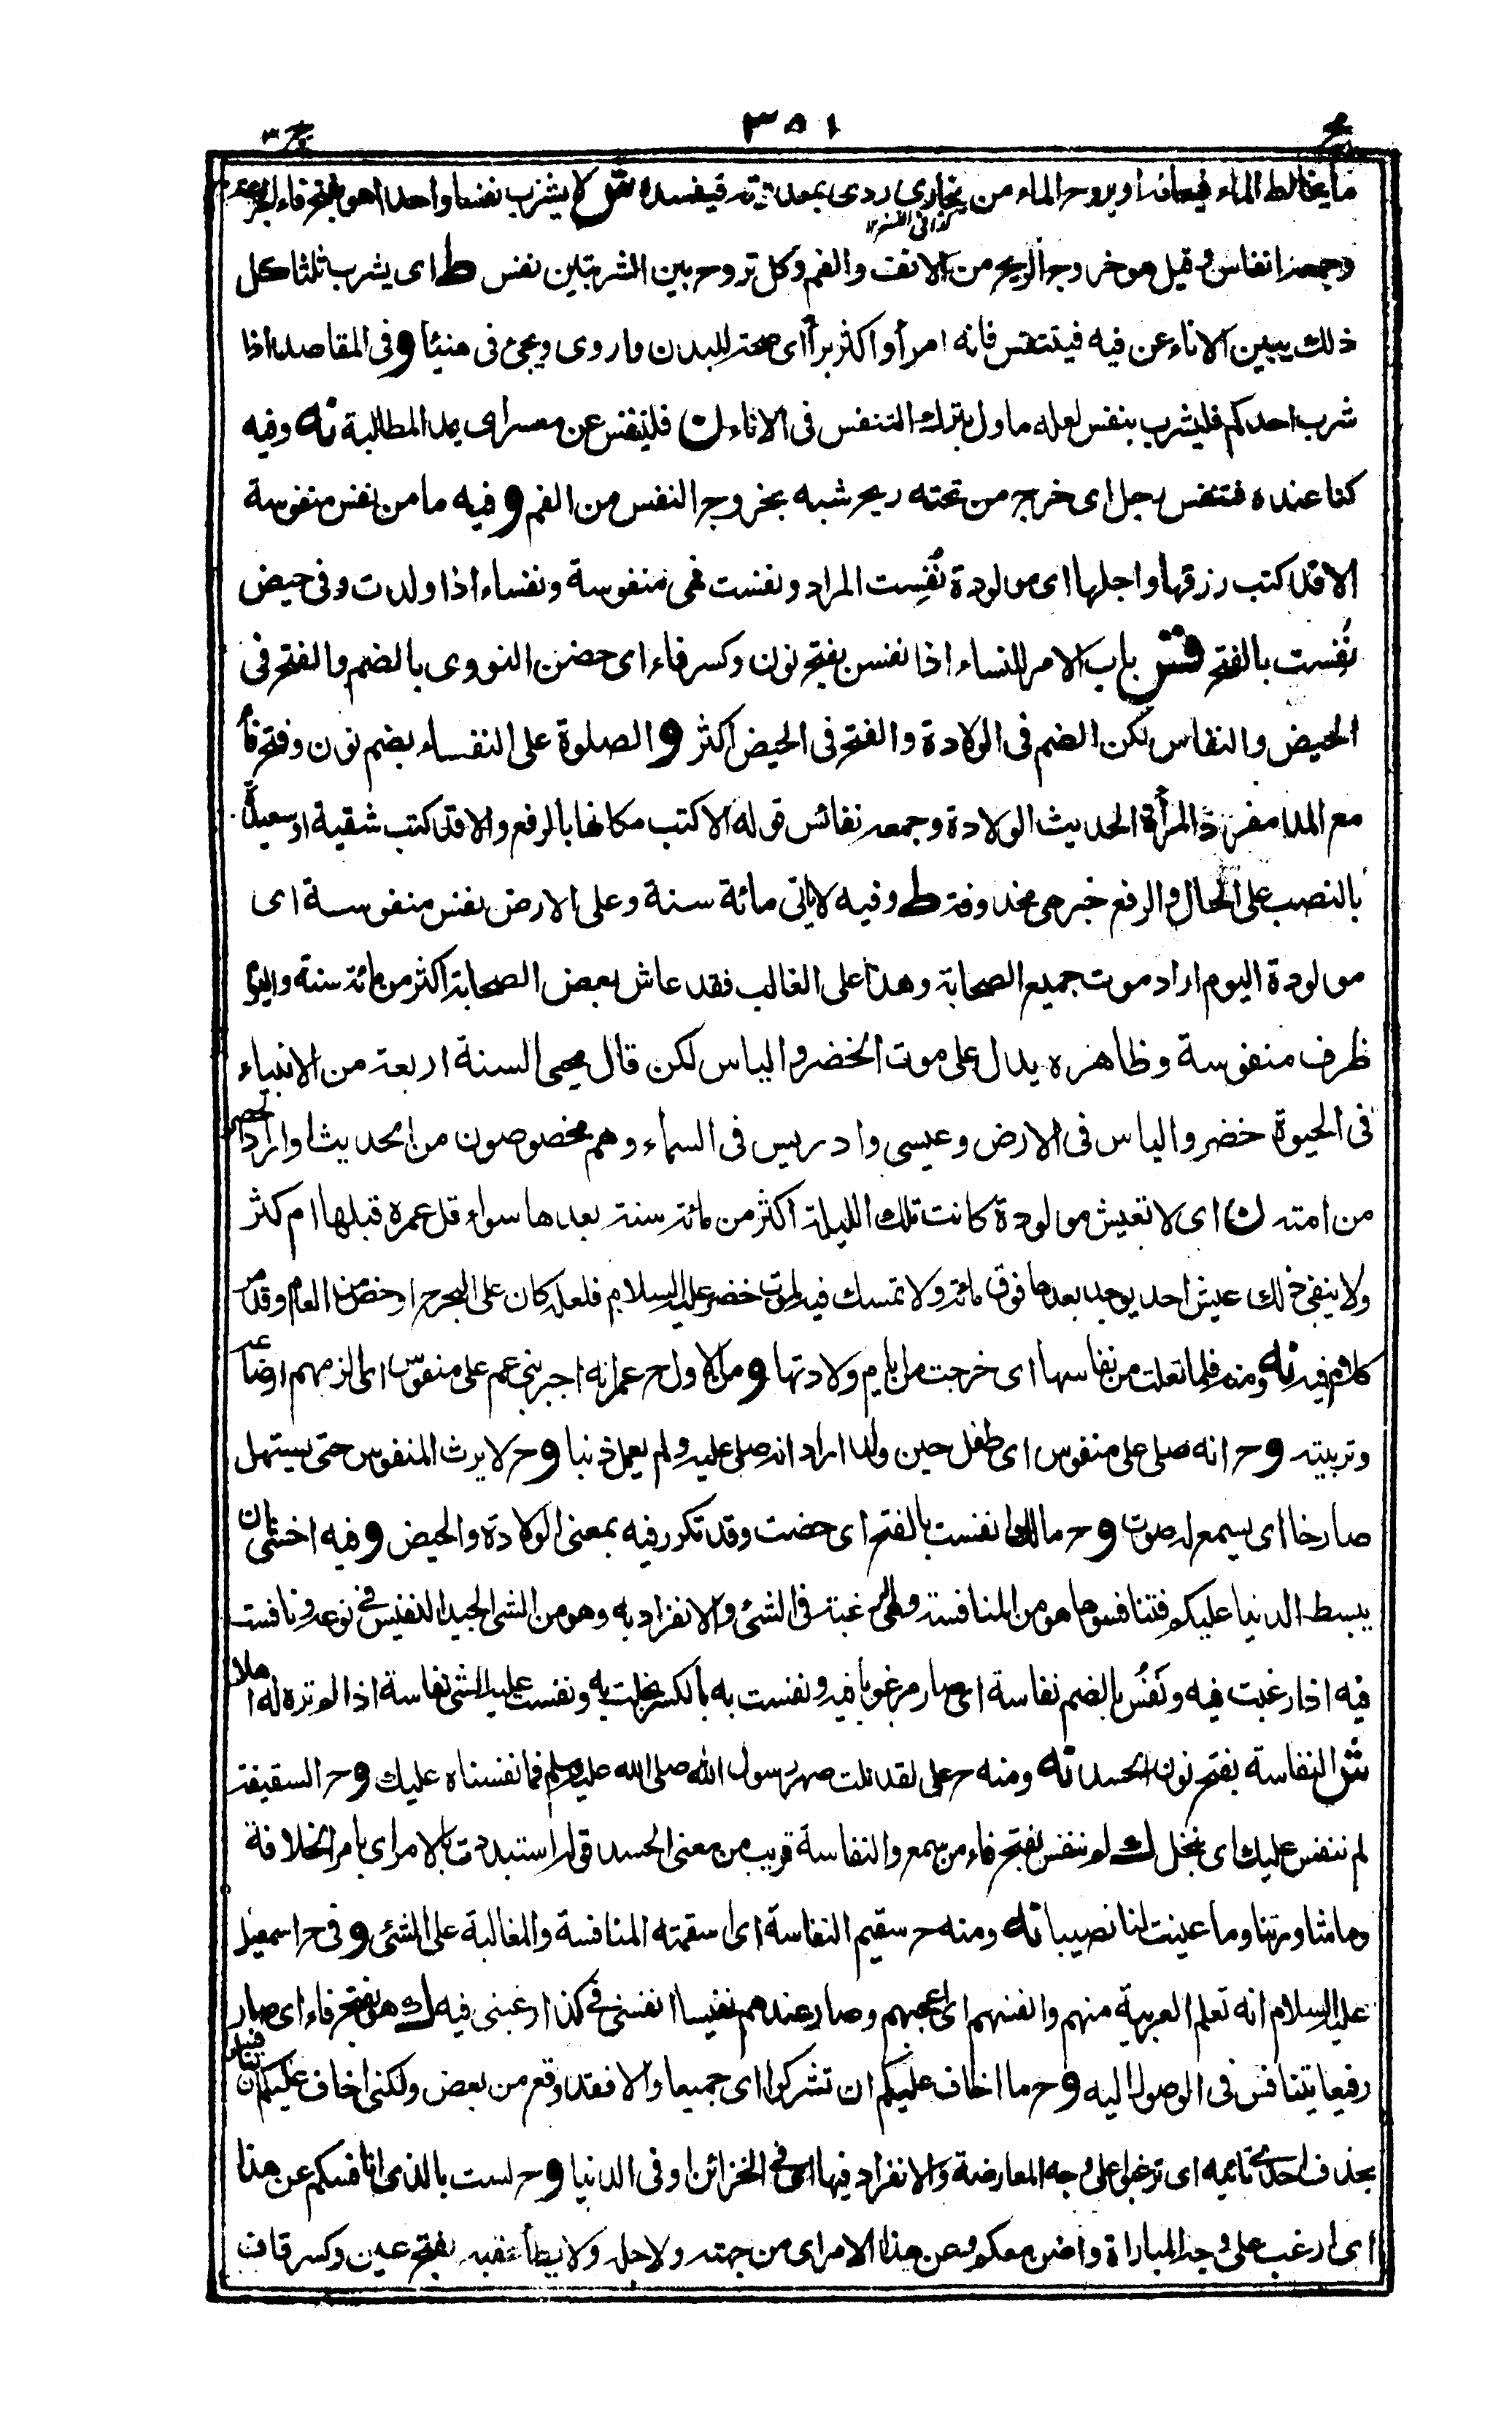 مج ٣٥١ ج٣
ما يخالط الماء فيعافه او يروح الماء من بخار ردى بمعدته فيفسده لا يشرب نفسا واحدا هو بفتح فاء
كذا فى النسخ ١٢
وجمعه انفاس و قيل هو خروج الريح من الانف والفم وكل تروح بين الشربتين نفس ط اى يشرب ثلثا كل
ذلك يبين الاناء عن فيه فيتنفس فانه امرأ واكثر برأ اى صحة للبدن واروى ويجئ فى هنيئا و فى المقاصد اذا
شرب احدكم فليشرب بنفس لعله ماول بترك التنفس فى الاناء ن فلينفس عن معسر اى يمد المطالبة نه وفيه
كنا عنده فتنفس رجل اى خرج من تحته ريح شبه بخروج النفس من الفم و فيه ما من نفس منفوسة
الا قد كتب رزقها واجلها اى مولودة نُفِست المراد ونفست فهى منفوسة ونفساء اذا ولدت وفى حيض
نُفِست بالفتح باب الامر للنساء اذا نفسن بفتح نون وكسر فاء اى حضن النووى بالضم والفتح فى
الحيض والنفاس لكن الضم فى الولادة والفتح فى الحيض اكثر و الصلوة على النفساء بضم نون وفتح فاء
مع المد مفرد المرأة الحديث الولادة وجمعه نفائس قوله الا كتب مكانها بالرفع والا قد كتب شقية او سعيدة
بالنصب على الحال والرفع خبر هى محذوفة ط وفيه لا ياتى مائة سنة وعلى الارض نفس منفوسة اى
مولودة اليوم اراد موت جميع الصحابة وهذا على الغالب فقد عاش بعض الصحابة اكثر من مائة سنة واليوم
ظرف منفوسة وظاهره يدل على موت الخضر والياس لكن قال محيى السنة اربعة من الانبياء
فى الحيوة خضر والياس فى الارض وعيسى وادريس فى السماء وهم مخصوصون من الحديث او اراد
من امته ن اى لا تعيش مولودة كانت تلك الليلة اكثر من مائة سنة بعدها سواء قل عمره قبلها ام كثر
ولا ينفى ذلك عيش احد يوجد بعدها فوق مائة ولا تمسك فيه لموت خضر عليه السلام فلعله كان على البحر او خص من العام وقد مر
كلام فيه نه ومنه فلما تعلت من نفاسها اى خرجت من ايام ولادتها و من الاول ح عمر انه اجبر بنى عم على منفوس اى الزمهم ارضاعه
وتربيته و ح انه صلى على منفوس اى طفل حين ولد اراد انه صلى عليه ولم يعمل ذنبا و ح لا يرث المنفوس حتى يستهل
صارخا اى يسمع له صوت و ح مالك انفست بالفتح اى حضت وقد تكرر فيه بمعنى الولادة والحيض و فيه اخشى ان
يبسط الدنيا عليكم فتنافسوها هو من المنافسة وهى الرغبة فى الشئ والانفراد به وهو من الشئ الجيد النفيس فى نوعه ونافست
فيه اذا رغبت فيه ونَفُس بالضم نفاسة اى صار مرغوبا فيه ونفست به بالكسر بخلت به ونفست عليه الشئ نفاسة اذا لم تره له اهلا
ش النفاسة بفتح نون الحسد نه ومنه ح على لقد نلت صهر رسول الله صلى الله عليه وسلم فما نفسناه عليك و ح السقيفة
لم ننفس عليك اى نبخل ك لم ننفس بفتح فاء من سمع والنفاسة قريب من معنى الحسد قوله استبددت بالامر اى بامر الخلافة
وما شاورتنا وما عينت لنا نصيبا نه ومنه ح سقيم النفاسة اى اسقمته المنافسة والمغالبة على الشئ و فى ح اسمعيل
عليه السلام انه تعلم العربية منهم وانفسهم اى اعجبهم وصار عندهم نفيسا انفسنى فى كذا ارغبنى فيه ك هو بفتح فاء اى صار
رفيعا يتنافس فى الوصول اليه و ح ما اخاف عليكم ان تشركوا اى جميعا والا فقد وقع من بعض ولكنى اخاف عليكم ان تنافسوا فيها
بحذف احدى تائيه اى ترغبوا على وجه المعارضة والانفراد فيها اى فى الخزائن او فى الدنيا و ح لست بالذى انافسكم عن هذا
اى ارغب على وجه المباراة وعن هذا الامر اى من جهته ولاجله ولا يطأ عقبه بفتح عين وكسر قاف